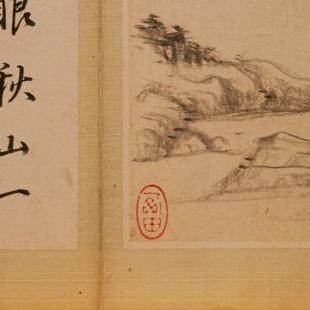 眼秋山一